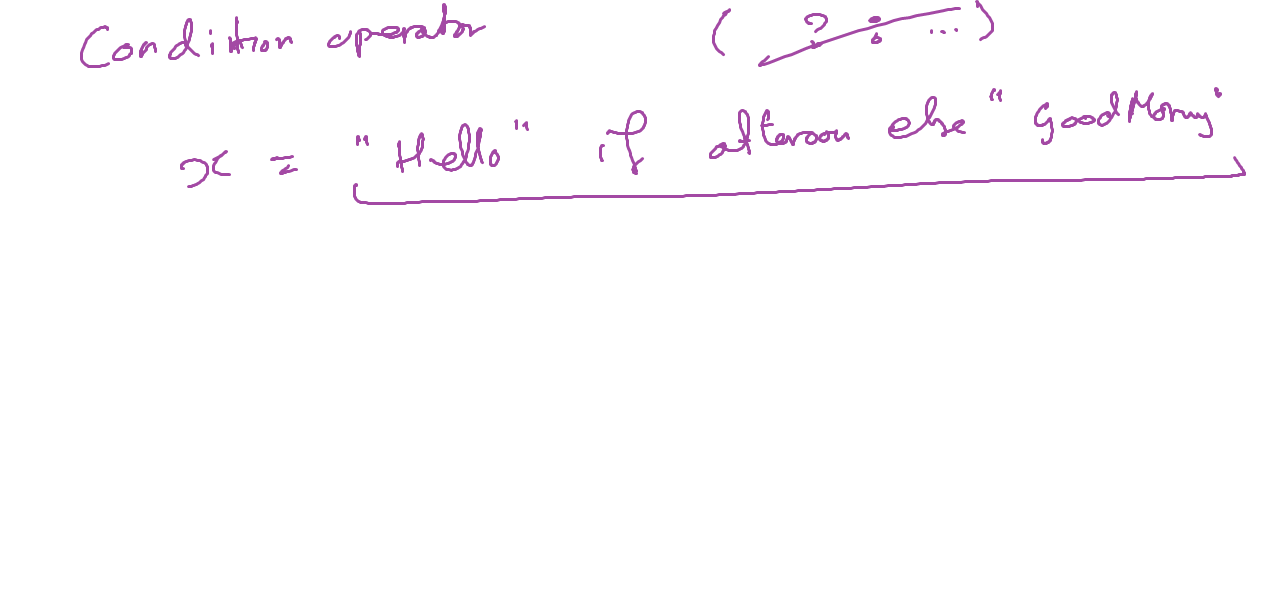 Condition operator ( ? : ... )
x = "Hello" if afternoon else "Good Morning"